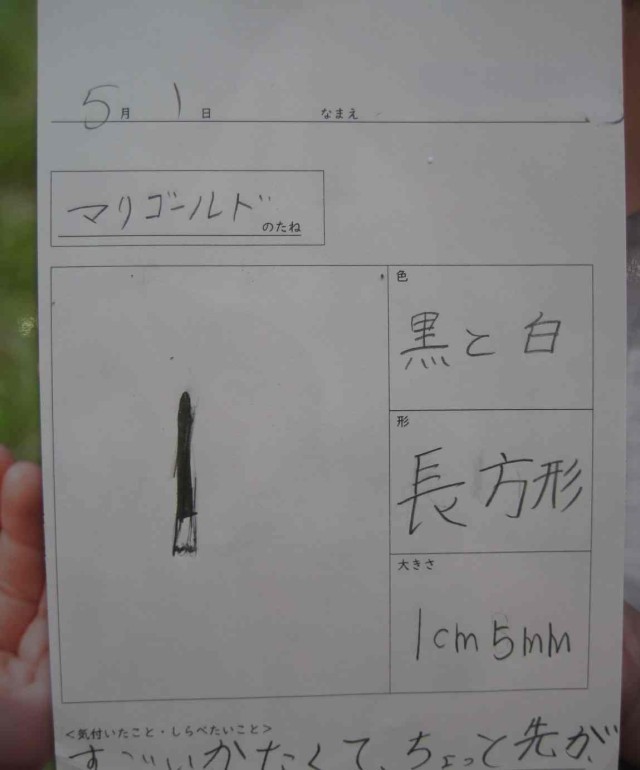 5月1日 なまえ
マリゴールド のたね
色
黒と白
形
長方形
大きさ
1cm5mm
<気付いたこと・しらべたいこと>
すごいかたくて、ちょっと先が、